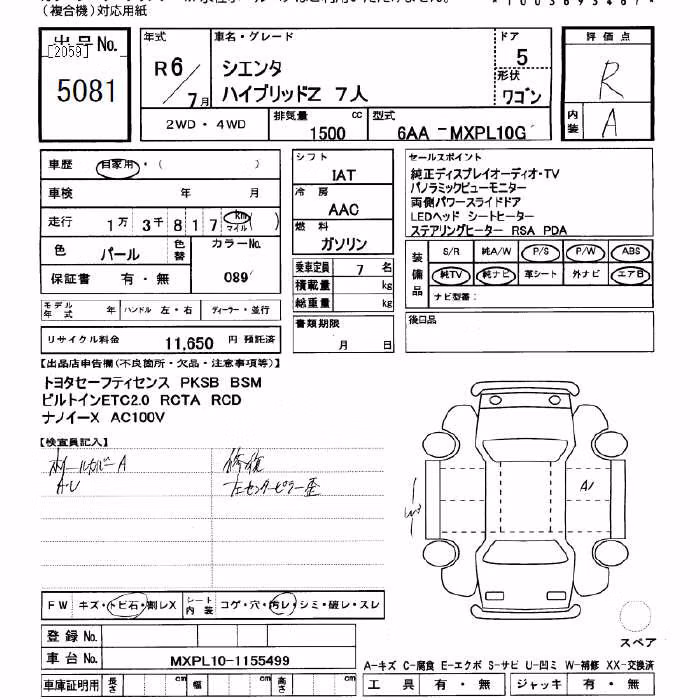 (複合機)対応用紙
出品No. 年式 車名・グレード ドア 評価点
[2059] R6 シエンタ 5 R
5081 7月 ハイブリッドZ 7人 形状 ワゴン 内装 A
2WD・4WD 排気量 1500 cc 型式 6AA-MXPL10G
車歴 自家用・( ) シフト IAT セールスポイント
車検 年 月 冷房 AAC 純正ディスプレイオーディオ・TV
パノラミックビューモニター
両側パワースライドドア
LEDヘッド シートヒーター
ステアリングヒーター RSA PDA
走行 1万 3千 8 1 7 km マイル ( ) 燃料 ガソリン
色 パール 色替 カラーNo. 089
保証書 有・無
乗車定員 7 名
積載量 kg
総重量 kg
装備品 S/R 純A/W P/S P/W ABS
純TV 純ナビ 革シート 外ナビ エアB
ナビ型番:
モデル年式 年 ハンドル 左・右 ディーラー・並行
書類期限 月 日
後日品
リサイクル料金 11,650 円 預託済
【出品店申告欄(不良箇所・欠品・注意事項等)】
トヨタセーフティセンス PKSB BSM
ビルトインETC2.0 RCTA RCD
ナノイーX AC100V
【検査員記入】
ホイールカバーA 修復
AU 左センターピラー歪
A1
FW キズ・トビ石・割レX シート内装 コゲ・穴・汚レ・シミ・破レ・スレ
登録No.
車台No. MXPL10-1155499
スペア
A-キズ C-腐食 E-エクボ S-サビ U-凹ミ W-補修 XX-交換済
車庫証明用 長さ cm 幅 cm 高さ cm 工具 有・無 ジャッキ 有・無